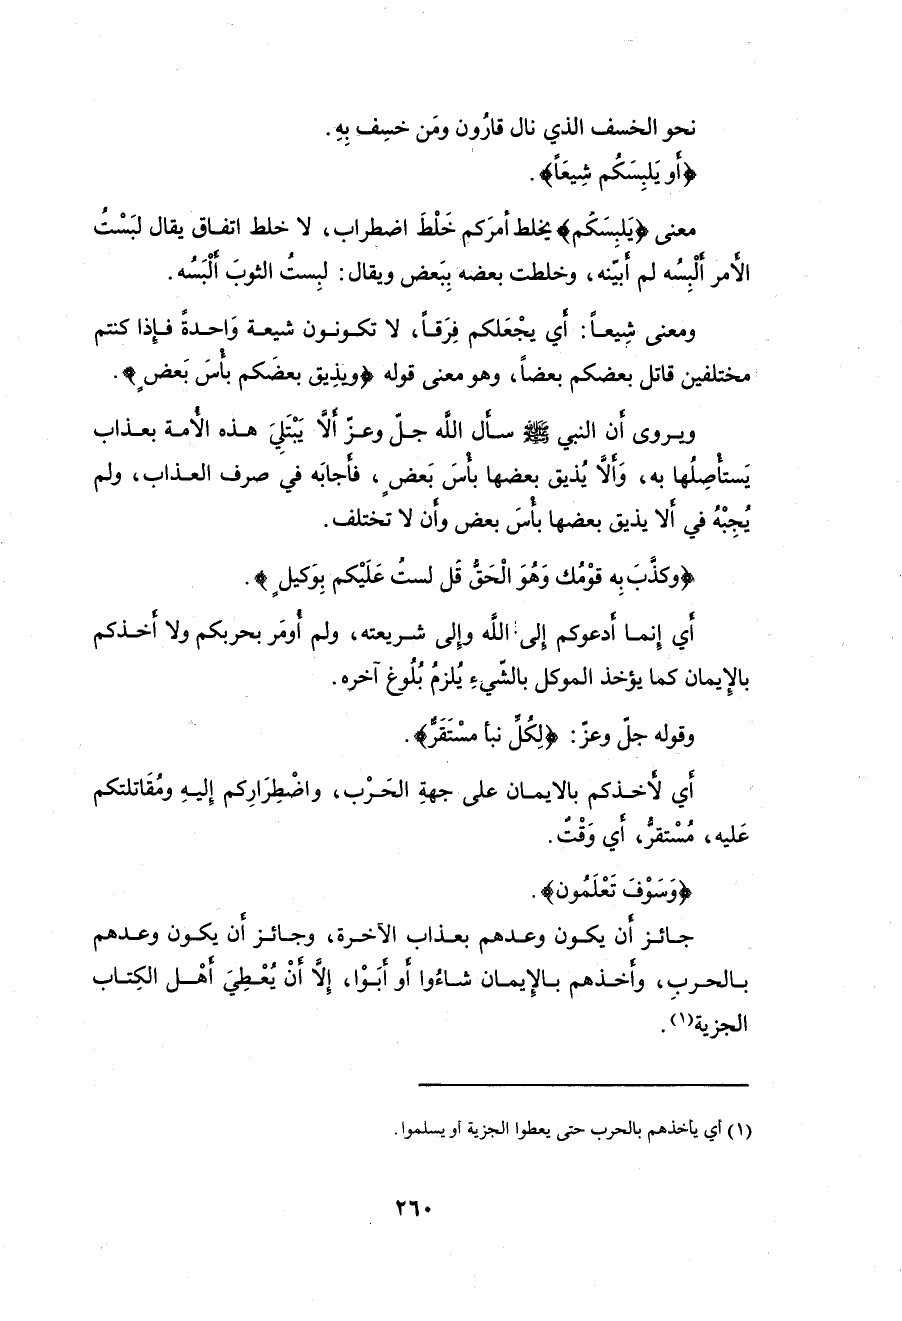 نحو الخسف الذي نال قارُون ومَن خسِف بِهِ.
﴿أَو يَلبِسَكُم شِيعَاً﴾.
معنى ﴿يَلبِسَكُم﴾ يخلط أمرَكم خَلْطَ اضطراب، لا خلط اتفـاق يقال لبَسْتُ
الأمر أَلْبِسُه لم أبيّنه، وخلطت بعضه بِبَعض ويقال: لبِستُ الثوبَ أَلْبَسُه.
ومعنى شِيعـاً: أي يجْعَلكم فِرَقـاً، لا تكـونـون شيعـة وَاحـدةً فـإذا كنتم
مختلفين قاتل بعضكم بعضاً، وهو معنى قوله ﴿ويذيق بعضَكم بأْسَ بَعض ٍ﴾.
ويـروى أن النبي ﷺ سـأل اللَّه جـلّ وعـزّ ألَّا يَبْتَلِيَ هـذه الأمـة بعـذاب
يَستأْصِلُها به، وَأَلَّا يُذيق بعضها بأْسَ بَعض ٍ، فأجابَه في صرف العـذاب، ولم
يُجِبْهُ في ألا يذيق بعضها بأْسَ بعض وأن لا تختلف.
﴿وكذَّبَ بِه قوْمُك وَهُوَ الْحَقُّ قُل لستُ عَلَيْكم بِوَكيل ٍ﴾.
أي إنمـا أدعوكم إلى اللَّه وإلى شـريعته، ولم أُومَر بحربكم ولا أخـذكم
بالإيمان كما يؤخذ الموكل بالشّيءِ يُلزمُ بُلُوغ آخره.
وقوله جلّ وعزّ: ﴿لِكُلِّ نبأ مسْتَقَرٌّ﴾.
أي لأخـذكم بالايمـان على جهةِ الحَـرْب، واضْطِرَارِكم إليـهِ ومُقَاتلتكم
عَليه، مُسْتقرٌّ، أي وَقْتٌ.
﴿وَسَوْفَ تَعْلَمُون﴾.
جـائـز أن يكـون وعـدهم بعـذاب الآخـرة، وجـائـز أن يكـون وعـدهم
بـالحـرب، وأخـذهم بـالإيمـان شـاءُوا أو أَبَـوْا، إلَّا أنْ يُعْـطِيَ أهْـل الكِتـاب
الجزية(١).
(١) أي يأخذهم بالحرب حتى يعطوا الجزية أو يسلموا.
٢٦٠